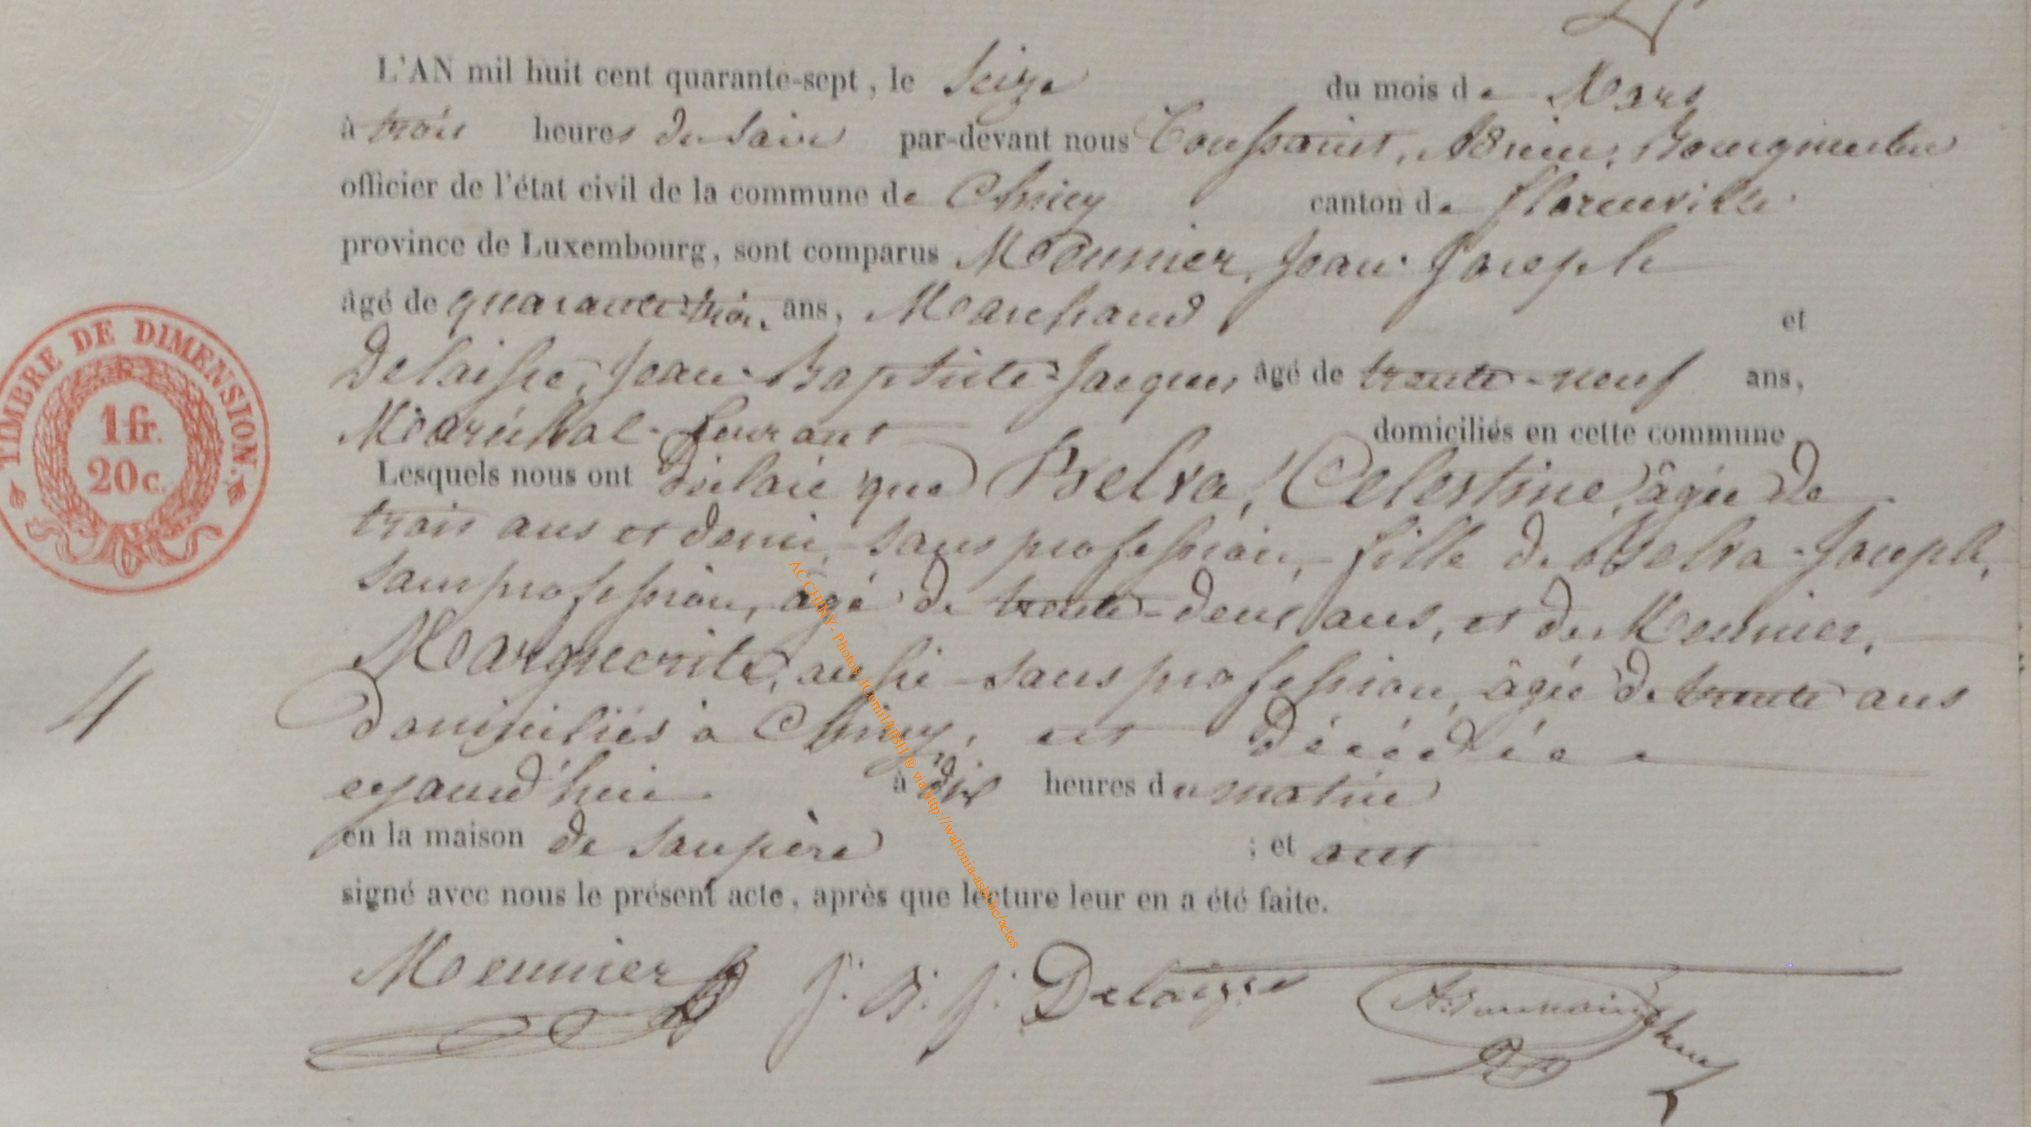 L'AN mil huit cent quarante-sept, le Seize du mois de Mars
à trois heures du Soir par-devant nous Toussaint, Adrien, Bourgmestre
officier de l'état civil de la commune de Chiny canton de florenville
province de Luxembourg, sont comparus Meunier, Jean Joseph
âgé de quarante trois ans, Marchand et
Delaisse, Jean-Baptiste-Jacques âgé de trente-neuf ans,
Maréchal-ferrant domiciliés en cette commune,
Lesquels nous ont déclaré que Belva, Celestine, âgée de
trois ans et demi, sans profession, fille de Belva-Joseph,
sans profession, âgé de trente-deux ans, et de Meunier,
Marguerite, aussi sans profession, âgée de trente ans
domiciliés à Chiny, est Décédée
aujourd'hui à dix heures du matin
en la maison de son père ; et ont
signé avec nous le présent acte, après que lecture leur en a été faite.
Meunier J. B. J. Delaisse A. Toussaint
4
TIMBRE DE DIMENSION.
1 fr.
20 c.